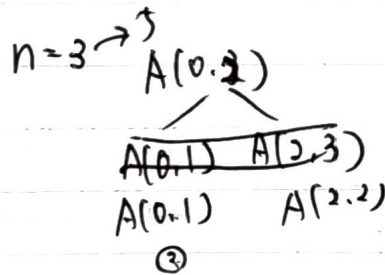 n=3 → 5
A(0.2)
A(0,1) A(2,3)
A(0.1) A(2.2)
②